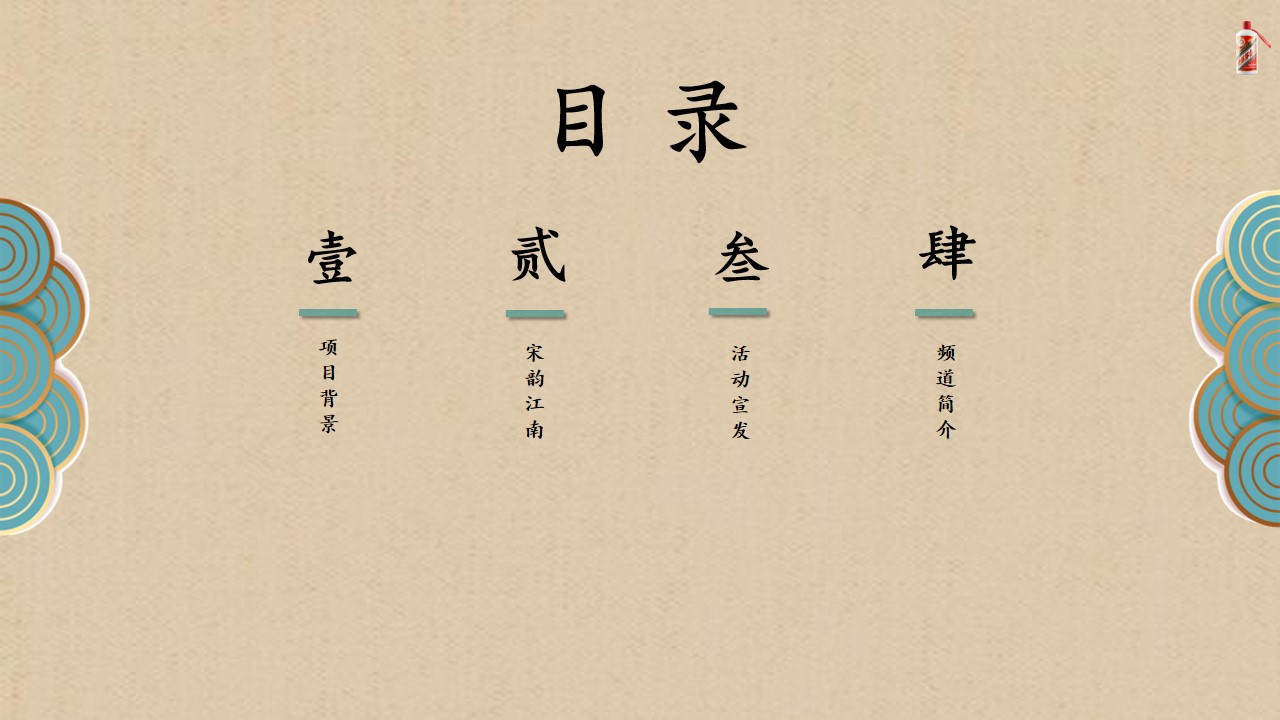 目 录
壹
项目背景
贰
宋韵江南
叁
活动宣发
肆
频道简介